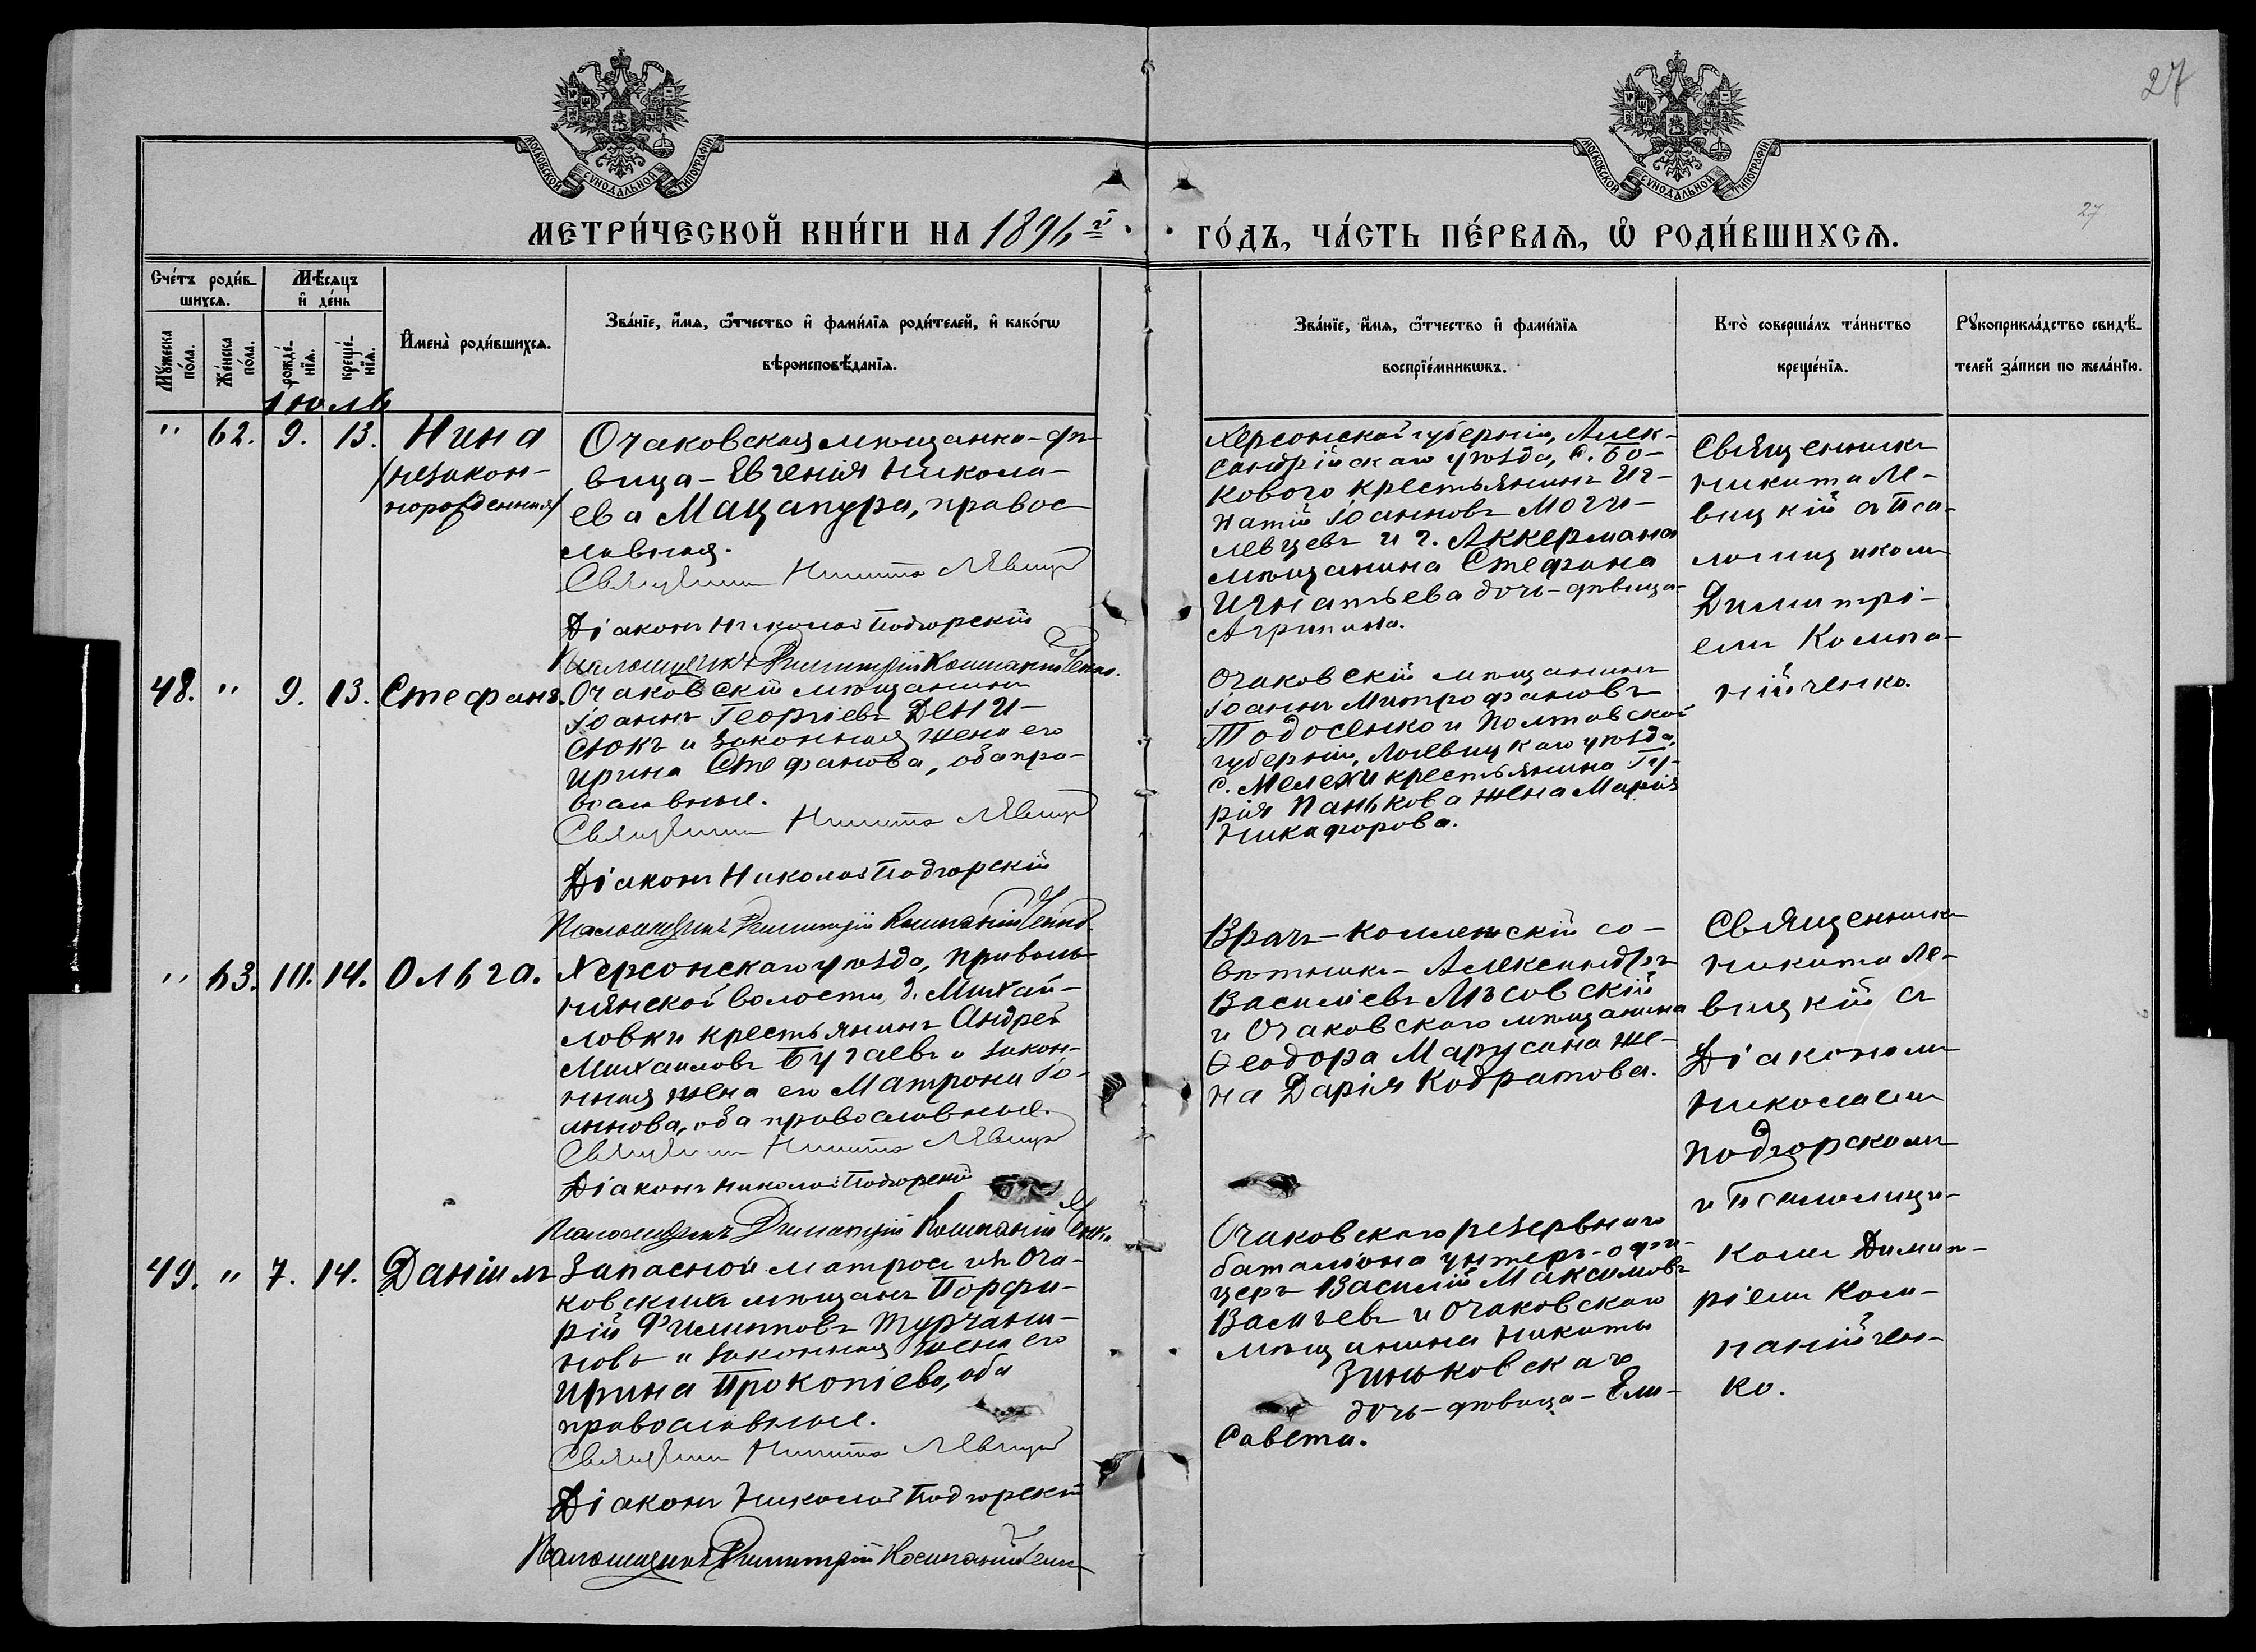 27
МОСКОВСКОЙ СѴНОДАЛЬНОЙ ТИПОГРАФІИ
МОСКОВСКОЙ СѴНОДАЛЬНОЙ ТИПОГРАФІИ
МЕТРИ́ЧЕСКОЙ КНИ́ГИ НА 1896 й
ГО́ДЪ, ЧА́СТЬ ПЕ́РВАѦ, Ѡ҆ РОДИ́ВШИХСѦ.
27.
Сче́тъ роди́в-
шихсѧ.
Мѣ́сѧцъ
и҆ де́нь
Мꙋ́жеска по́ла.
Же́нска по́ла.
рожде́-нїѧ.
креще́-нїѧ.
И҆мена̀ роди́вшихсѧ.
Зва́нїе, и҆́мѧ, ѻ҆́тчество и҆ фами́лїѧ роди́телей, и҆ како́гѡ
вѣроисповѣ́данїѧ.
Зва́нїе, и҆́мѧ, ѻ҆́тчество и҆ фами́лїѧ
воспрїе́мникѡвъ.
Кто̀ соверша́лъ та́инство
креще́нїѧ.
Рꙋкоприкла́дство свидѣ́-
телей за́писи по жела́нїю.
Іюль
" 62. 9. 13. Нина
(незакон-
норожденная)
Очаковская мѣщанка-дѣ-
вица-Евгенія Никола-
ева Мацапура, правос-
лавная.
Священник Никита Левицкій
Діаконъ Николай Подгорскій
Псаломщикъ Димитрій Компанійченко.
Херсонской губерніи, Алек-
сандрійскаго уѣзда, с. Бо-
кового крестьянинъ Иг-
натій Іоанновъ Моги-
левцевъ и г. Аккермана
мѣщанина Стефана
Игнатьева дочь-дѣвица-
Агрипина.
Священникъ
Никита Ле-
вицкій съ Пса-
ломщикомъ
Димитрі-
емъ Компа-
нійченко.
48. " 9. 13. Стефанъ.
Очаковскій мѣщанинъ
Іоаннъ Георгіевъ Дени-
сюкъ и законная жена его
Ирина Стефанова, оба пра-
вославные.
Священник Никита Левицкій
Діаконъ Николай Подгорскій
Псаломщикъ Димитрій Компанійченко.
Очаковскій мѣщанинъ
Іоаннъ Митрофановъ
Тодосенко и Полтавской
губерніи, уѣзда,
с. Мелехи крестьянина Гу-
рія Панькова жена Марія
Никифорова.
" 63. 10. 14. Ольга.
Херсонскаго уѣзда, Приволь-
нянской волости, д. Михай-
ловки крестьянинъ Андрей
Михаиловъ Бугаевъ и закон-
ная жена его Матрона Іо-
аннова, оба православные.
Священник Никита Левицкій
Діаконъ Николай Подгорскій
Псаломщикъ Димитрій Компанійченко.
Врачъ-коллежскій со-
вѣтникъ-Александръ
Василіевъ Лѣсовскій
и Очаковскаго мѣщанина
Ѳеодора Марусина же-
на Дарія Кодратова.
Священникъ
Никита Ле-
вицкій съ
Діакономъ
Николаемъ
Подгорскимъ
и Псаломщи-
комъ Димит-
ріемъ Ком-
панійчен-
ко.
49. " 7. 14. Даніилъ
Запасной матросъ изъ Оча-
ковскихъ мѣщанъ Порфи-
рій Филипповъ Турчани-
новъ и законная жена его
Ирина Прокопіева, оба
православные.
Священник Никита Левицкій
Діаконъ Николай Подгорскій
Псаломщикъ Димитрій Компанійченко
Очаковскаго резервнаго
баталіона унтеръ-офи-
церъ Василій Максимовъ
Васичевъ и Очаковскаго
мѣщанина Никиты
Зиньковскаго
дочь-дѣвица-Ели-
савета.